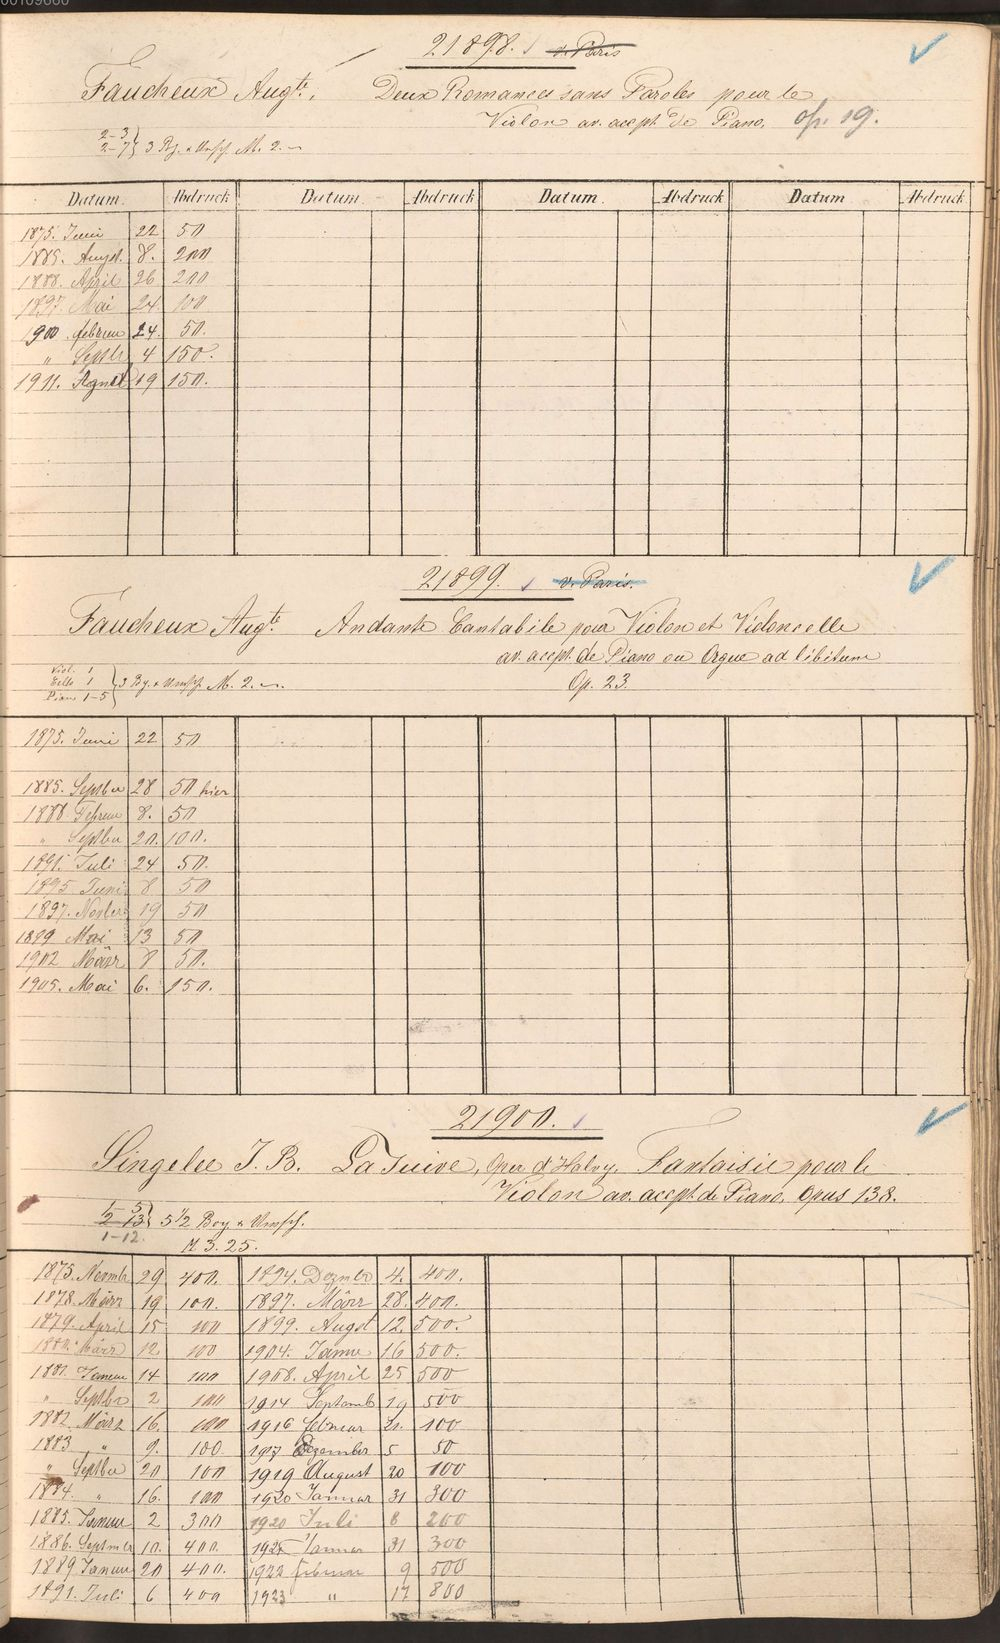 00109660
21898. v. Paris
Faucheux Augte. Deux Romances sans Paroles pour le
Violon av. accpt. de Piano. op. 19.
2-3
2-7 } 3 Bg. & Umsch. M. 2.–
Datum Abdruck Datum Abdruck Datum. Abdruck Datum Abdruck
1875. Juni 22 50
1885. Augst. 8. 200
1888. April 26 200
1897. Mai 24 100
1900. februar 24. 50.
" Septbr 4 150.
1911. 19 150.
21899. v. Paris.
Faucheux Augte. Andante Cantabile pour Violon et Violoncelle
av. accpt. de Piano ou Orgue ad libitum
Op. 23.
Viol. 1
Cello 1
Piano 1-5 } 3 Bg. & Umsch. M. 2.–
1875. Juni 22 50
1885. Septber 28 50 hier
1888. Februar 8. 50
" Septber 20. 100.
1891. Juli 24 50.
1895. Juni 8 50
1897. Novber 19 50
1899 Mai 13 50
1902 März 8 50.
1905. Mai 6. 150.
21900.
Singelée J. B. La Juive, Oper d'Halvy, Fantaisie pour le
Violon av. accpt. de Piano. Opus 138.
1-5
2-13 } 5 1/2 Bog. & Umsch.
1-12.
M 3. 25.
1875. Novmbr 29 400. 1894. Dezmbr 4. 400.
1878. März 19 100. 1897. März 28. 400.
1879. April 15 100 1899. Augst 12. 500.
1880. März 12. 100 1904. Janur 16 500.
1881. Januar 14 100 1908. April 25 500
" Septbr 2 100 1914 Septemb 19 500
1882. März 16. 100 1916 februar 21. 100
1883 " 9. 100. 1917 Dezember 5 50
" Septber 20 100 1919 August 20 100
1884. " 16. 100 1920 Januar 31 300
1885. Januar 2 300 1920 Juli 8 200
1886. Septmbr 10. 400. Januar 31 300
1889 Januar 20 400. 1922 februar 9 500
1891. Juli 6 400 1923 " 17 800